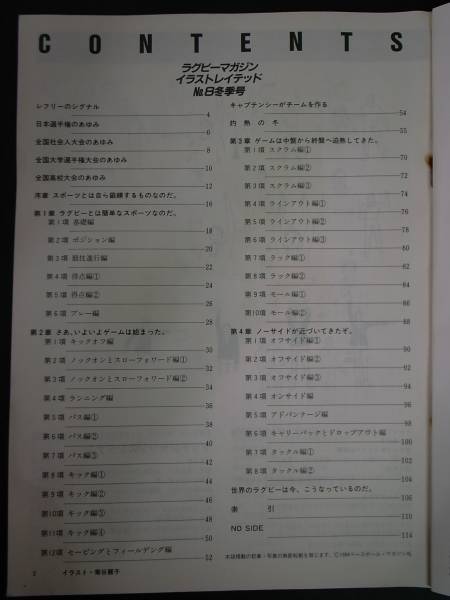 CONTENTS
ラグビーマガジン
イラストレイテッド
No.8冬季号
レフリーのシグナル
4
日本選手権のあゆみ
6
全国社会人大会のあゆみ
8
全国大学選手権大会のあゆみ
10
全国高校大会のあゆみ
12
序章 スポーツとは自ら鍛練するものなのだ。
16
第1章 ラグビーとは簡単なスポーツなのだ。
第1項 基礎編
18
第2項 ポジション編
20
第3項 競技進行編
22
第4項 得点編①
24
第5項 得点編②
26
第6項 プレー編
28
第2章 さあ、いよいよゲームは始まった。
第1項 キックオフ編
30
第2項 ノックオンとスローフォワード編①
32
第3項 ノックオンとスローフォワード編②
34
第4項 ランニング編
36
第5項 パス編①
38
第6項 パス編②
40
第7項 パス編③
42
第8項 キック編①
44
第9項 キック編②
46
第10項 キック編③
48
第11項 キック編④
50
第12項 セービングとフィールデング編
52
キャプテンシーがチームを作る
54
灼熱の冬
55
第3章 ゲームは中盤から終盤へ過熱してきた。
第1項 スクラム編①
70
第2項 スクラム編②
72
第3項 スクラム編③
74
第4項 ラインアウト編①
76
第5項 ラインアウト編②
78
第6項 ラインアウト編③
80
第7項 ラック編①
82
第8項 ラック編②
84
第9項 モール編①
86
第10項 モール編②
88
第4章 ノーサイドが近づいてきたぞ。
第1項 オフサイド編①
90
第2項 オフサイド編②
92
第3項 オフサイド編③
94
第4項 オンサイド編
96
第5項 アドバンテージ編
98
第6項 キャリーバックとドロップアウト編
100
第7項 タックル編①
102
第8項 タックル編②
104
世界のラグビーは今、こうなっているのだ。
106
索引
110
NO SIDE
114
本誌掲載の記事・写真の無断転載を禁じます。
2
イラスト・